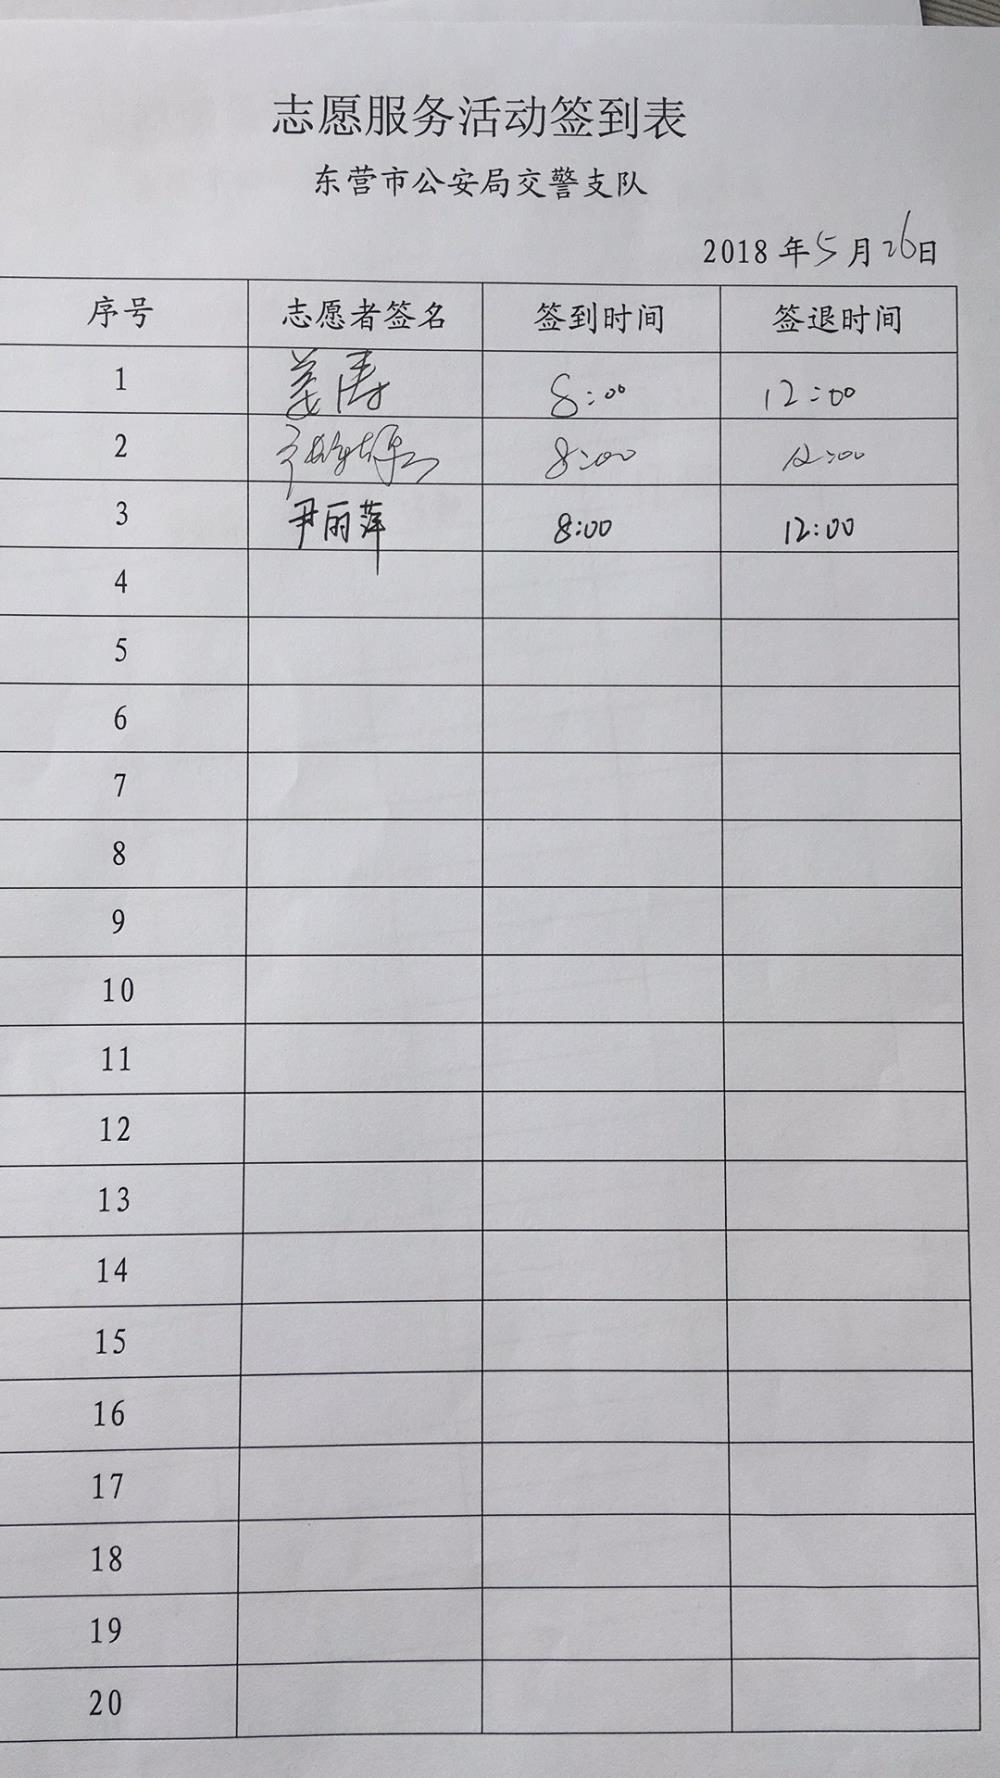 志愿服务活动签到表
东营市公安局交警支队
2018 年 5 月 26 日
序号 志愿者签名 签到时间 签退时间
1 姜涛 8:00 12:00
2 8:00 12:00
3 尹丽萍 8:00 12:00
4
5
6
7
8
9
10
11
12
13
14
15
16
17
18
19
20